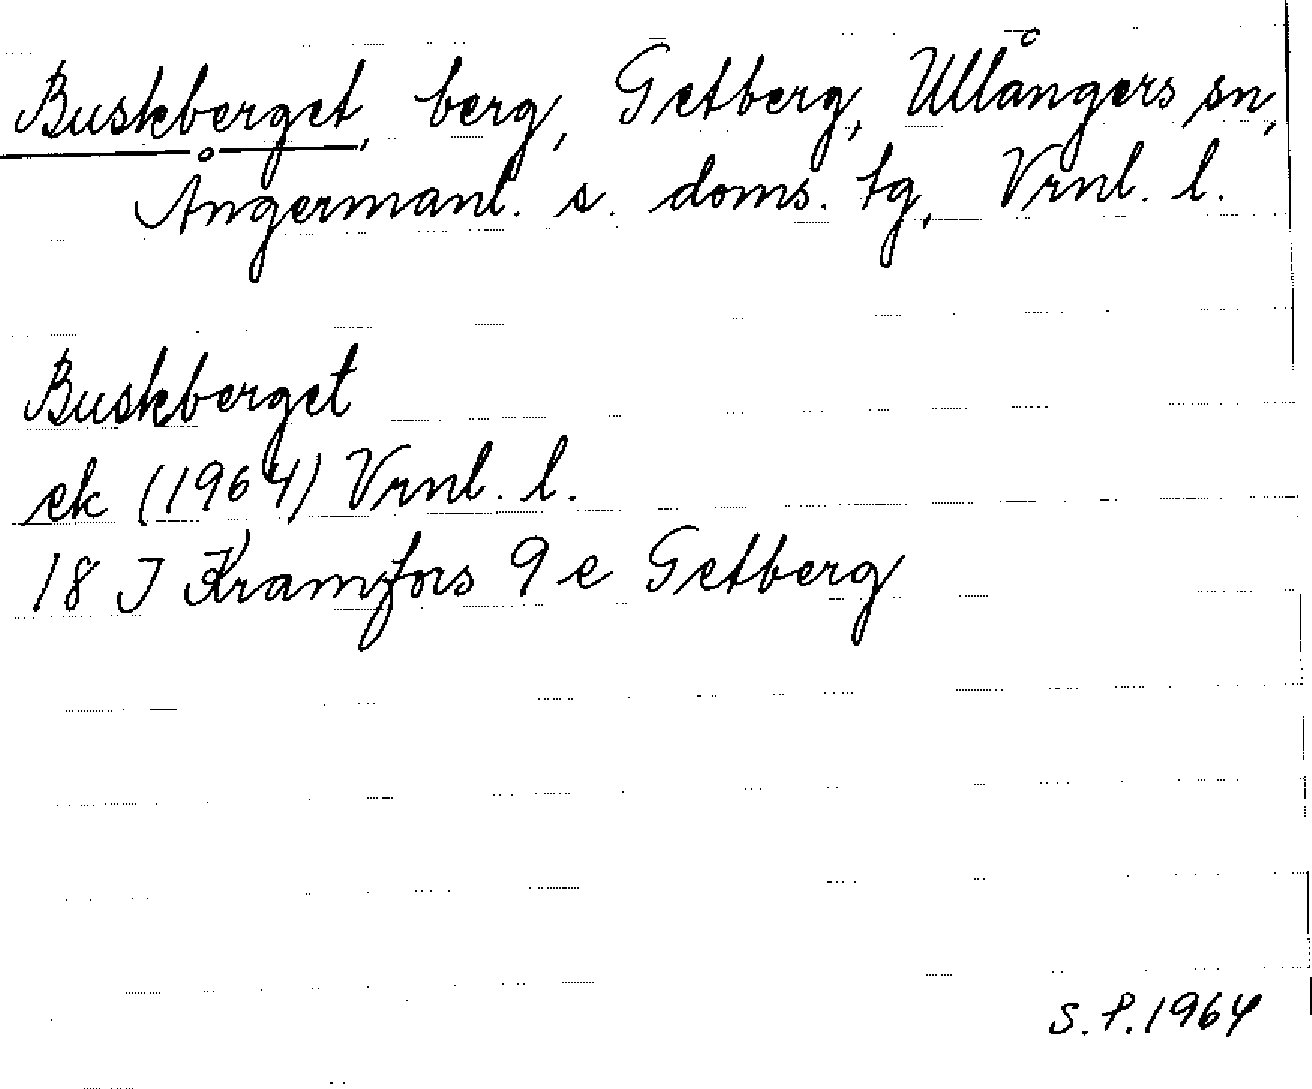 Buskberget, berg, Getberg, Ullångers sn,
Ångermanl. s. doms. tg, Vrnl. l.
Buskberget
ek (1964) Vrnl. l.
18 J Kramfors 9 e Getberg
S. P. 1964